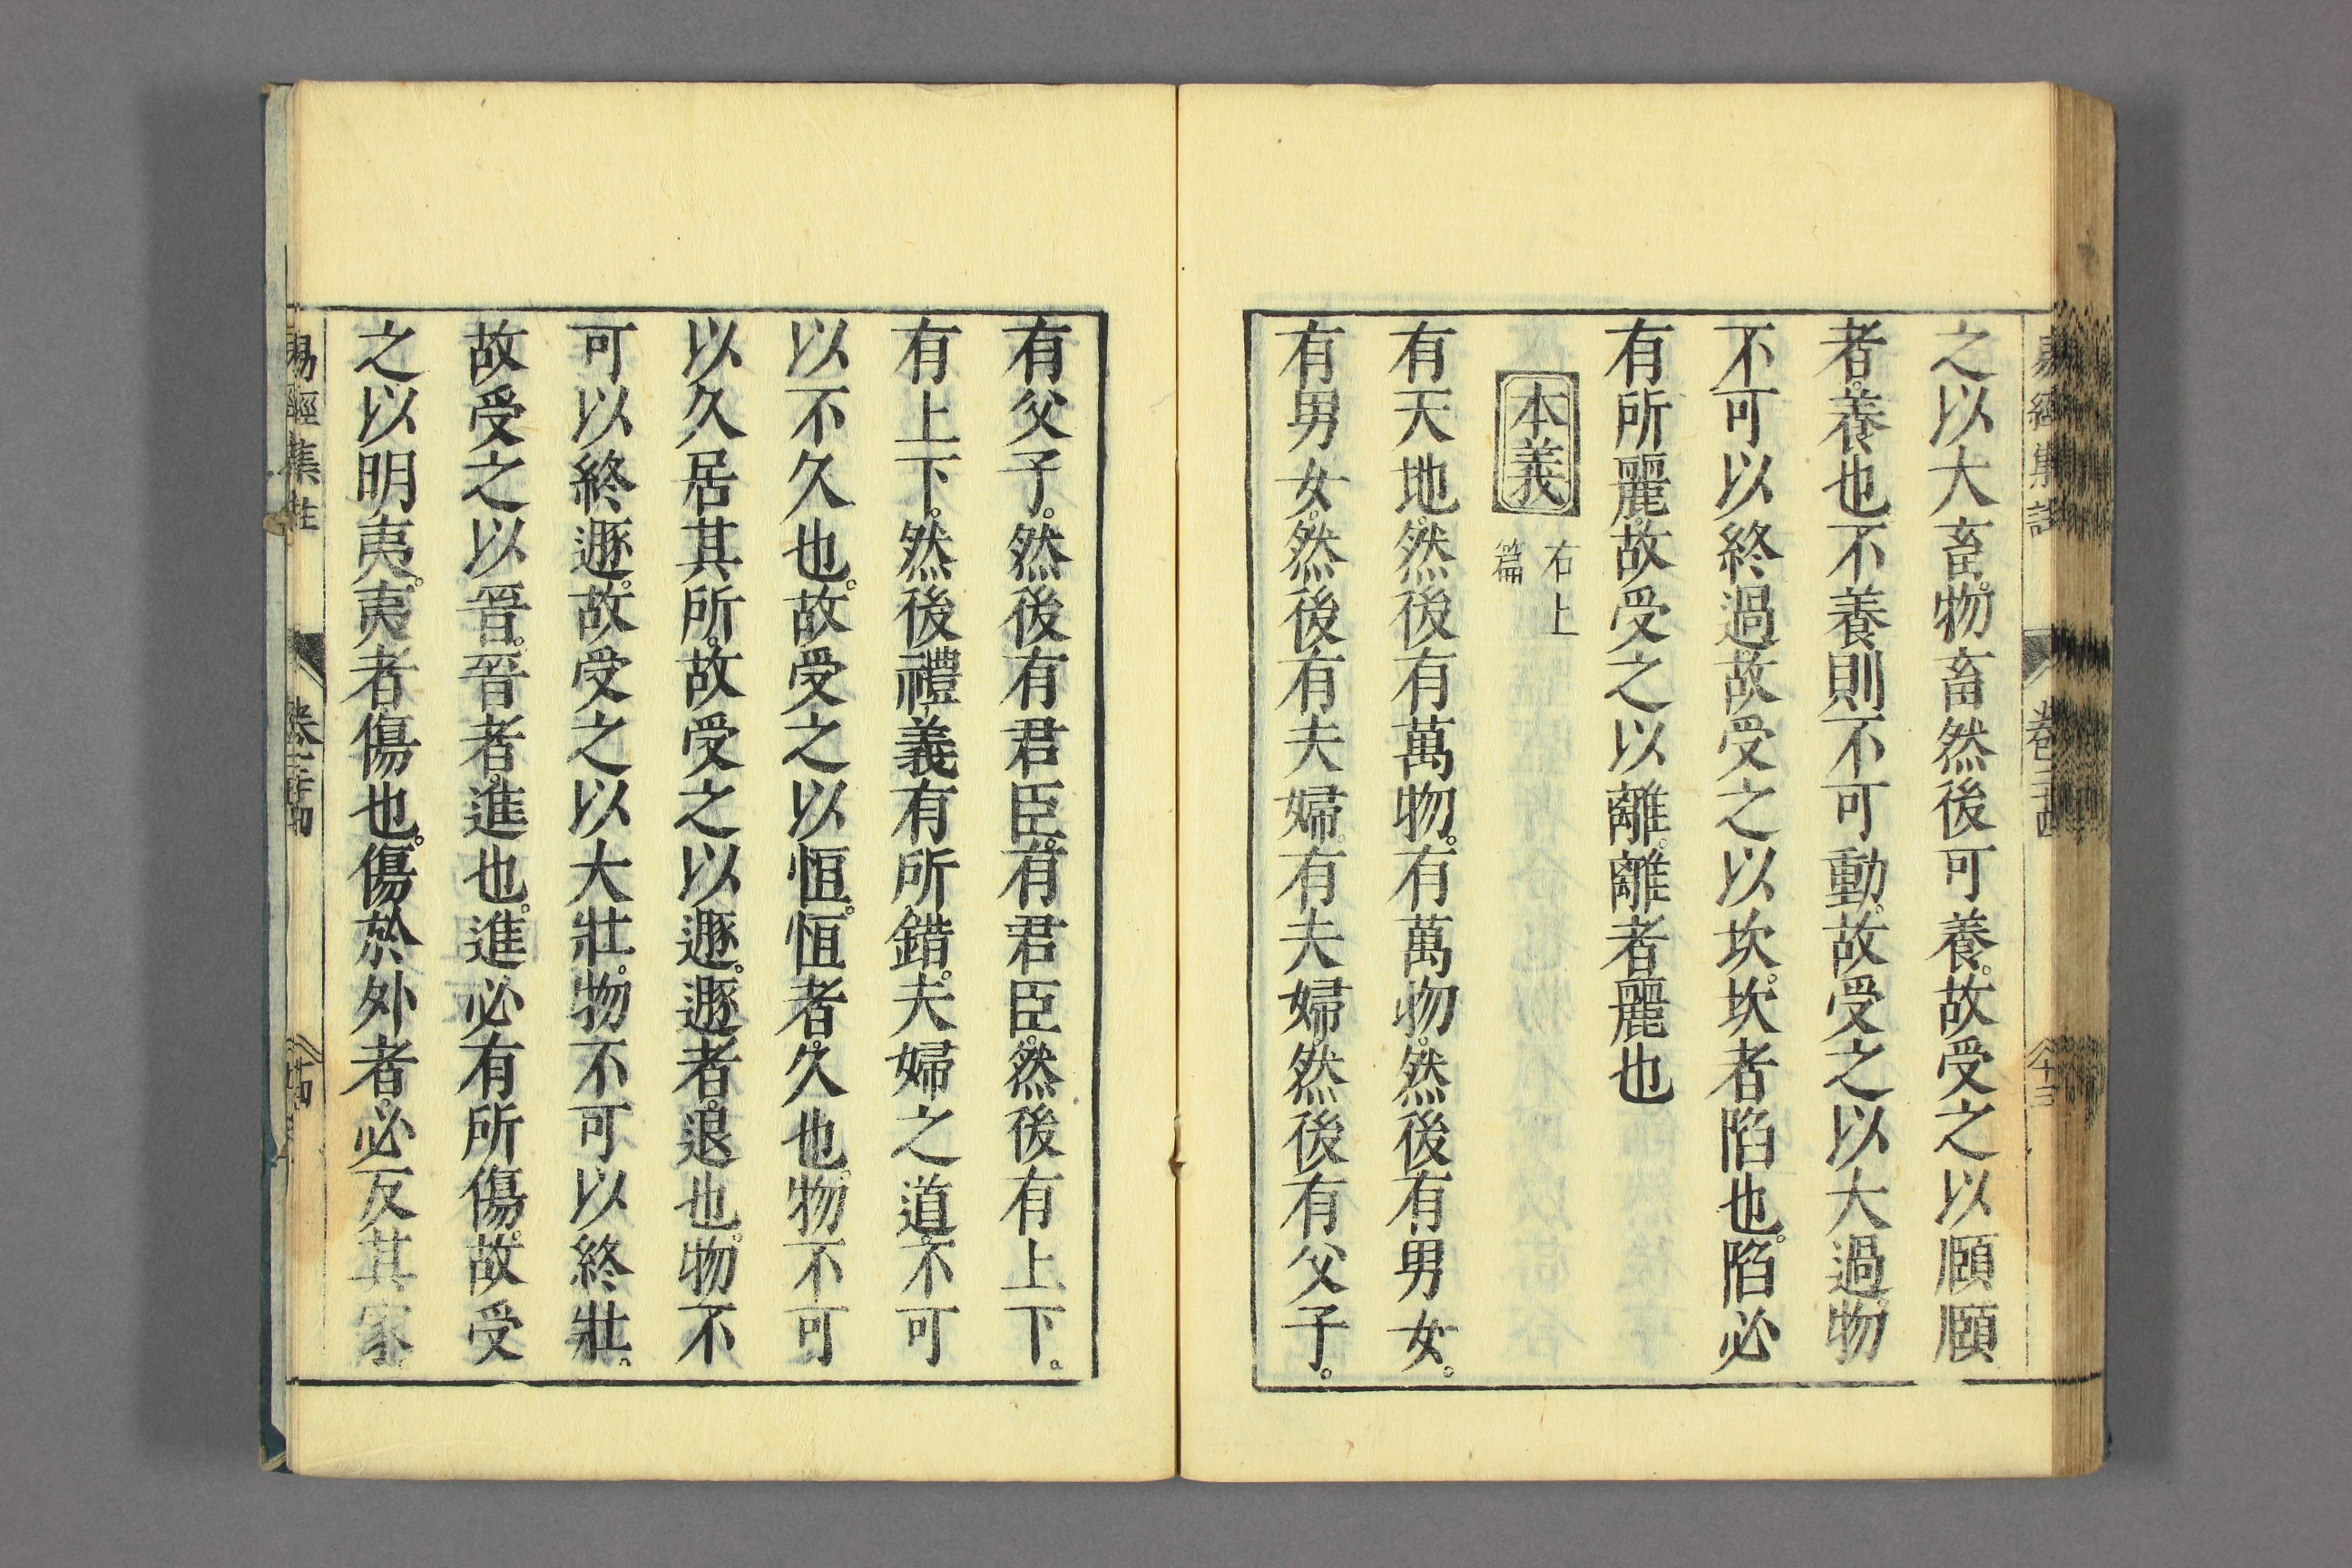 之以大畜。物畜然後可養。故受之以頤。頤
者。養也。不養則不可動。故受之以大過。物
不可以終過。故受之以坎。坎者陷也。陷必
有所麗。故受之以離。離者麗也
本義 右上篇
有天地。然後有萬物。有萬物。然後有男女。
有男女。然後有夫婦。有夫婦。然後有父子。
有父子。然後有君臣。有君臣。然後有上下。
有上下。然後禮義有所錯。夫婦之道。不可
以不久也。故受之以恒。恒者。久也。物不可
以久居其所。故受之以遯。遯者。退也。物不
可以終遯。故受之以大壯。物不可以終壯。
故受之以晉。晉者。進也。進必有所傷。故受
之以明夷。夷者傷也。傷於外者。必反其家
易經集註